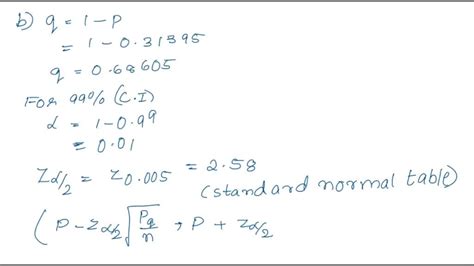 b) q = 1 - P
= 1 - 0.31395
q = 0.68605
For 99% (C.I)
α = 1 - 0.99
= 0.01
Zα/2 = Z0.005 = 2.58
(standard normal table)
(P - Zα/2 √(Pq/n) , P + Zα/2